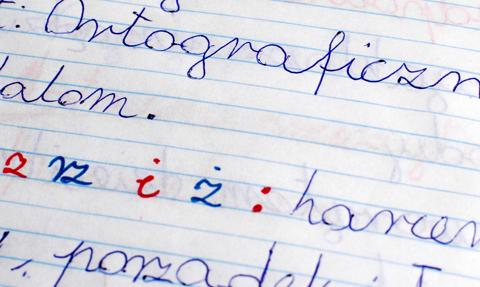 : Ortograficzn
alom.
z rz i ż : harcer
, porządek i T